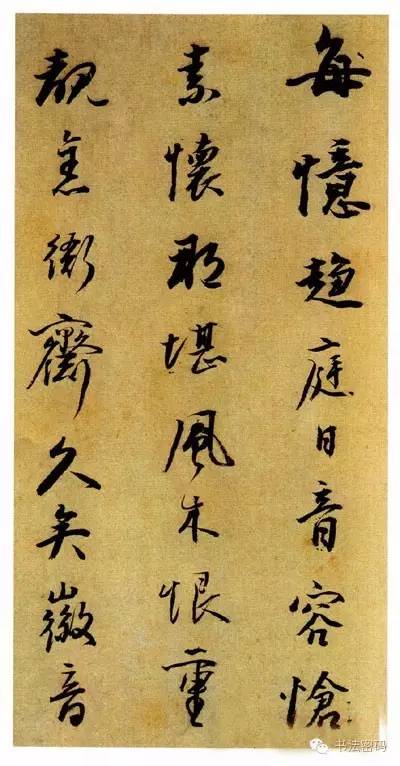 每憶趨庭日音容愴
素懷那堪風木恨重
齋久矣徽音
书法密码